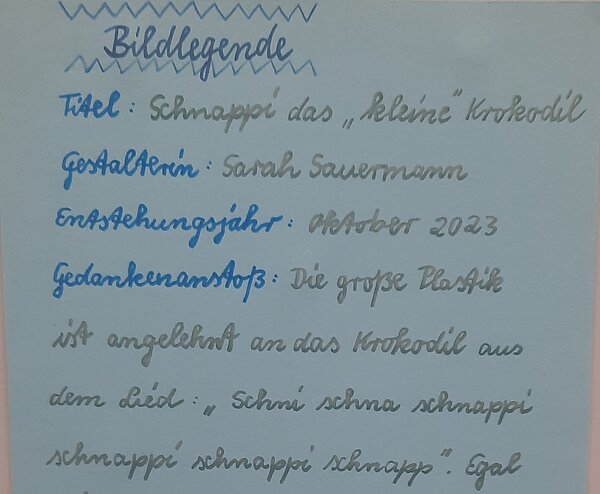 Bildlegende
Titel: Schnappi das „kleine" Krokodil
Gestalterin: Sarah Sauermann
Entstehungsjahr: Oktober 2023
Gedankenanstoß: Die große Plastik
ist angelehnt an das Krokodil aus
dem Lied: „Schni schna schnappi
schnappi schnappi schnapp". Egal